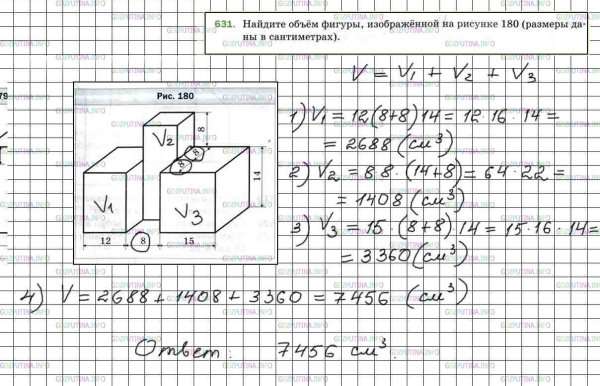 631. Найдите объём фигуры, изображённой на рисунке 180 (размеры да-
ны в сантиметрах).
V = V₁ + V₂ + V₃
79
Рис. 180
V₂
8
8
8
V₁
V₃
14
12
8
15
1) V₁ = 12(8+8)14 = 12·16·14 =
= 2688 (см³)
2) V₂ = 8·8·(14+8) = 64·22 =
= 1408 (см³)
3) V₃ = 15·(8+8)·14 = 15·16·14 =
= 3360 (см³)
4) V = 2688 + 1408 + 3360 = 7456 (см³)
Ответ: 7456 см³.
GDZPUTINA.INFO